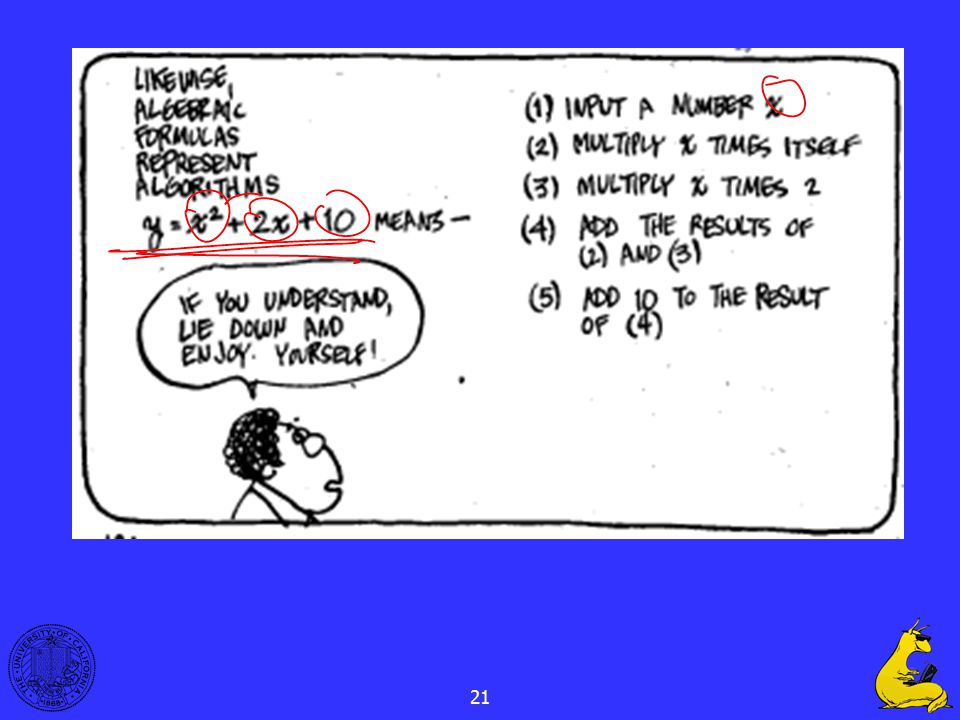 LIKEWISE,
ALGEBRAIC
FORMULAS
REPRESENT
ALGORITHMS
y = x² + 2x + 10 MEANS —
(1) INPUT A NUMBER x
(2) MULTIPLY x TIMES ITSELF
(3) MULTIPLY x TIMES 2
(4) ADD THE RESULTS OF
(2) AND (3)
(5) ADD 10 TO THE RESULT
OF (4)
IF YOU UNDERSTAND,
LIE DOWN AND
ENJOY YOURSELF!
THE UNIVERSITY OF CALIFORNIA
1868
21